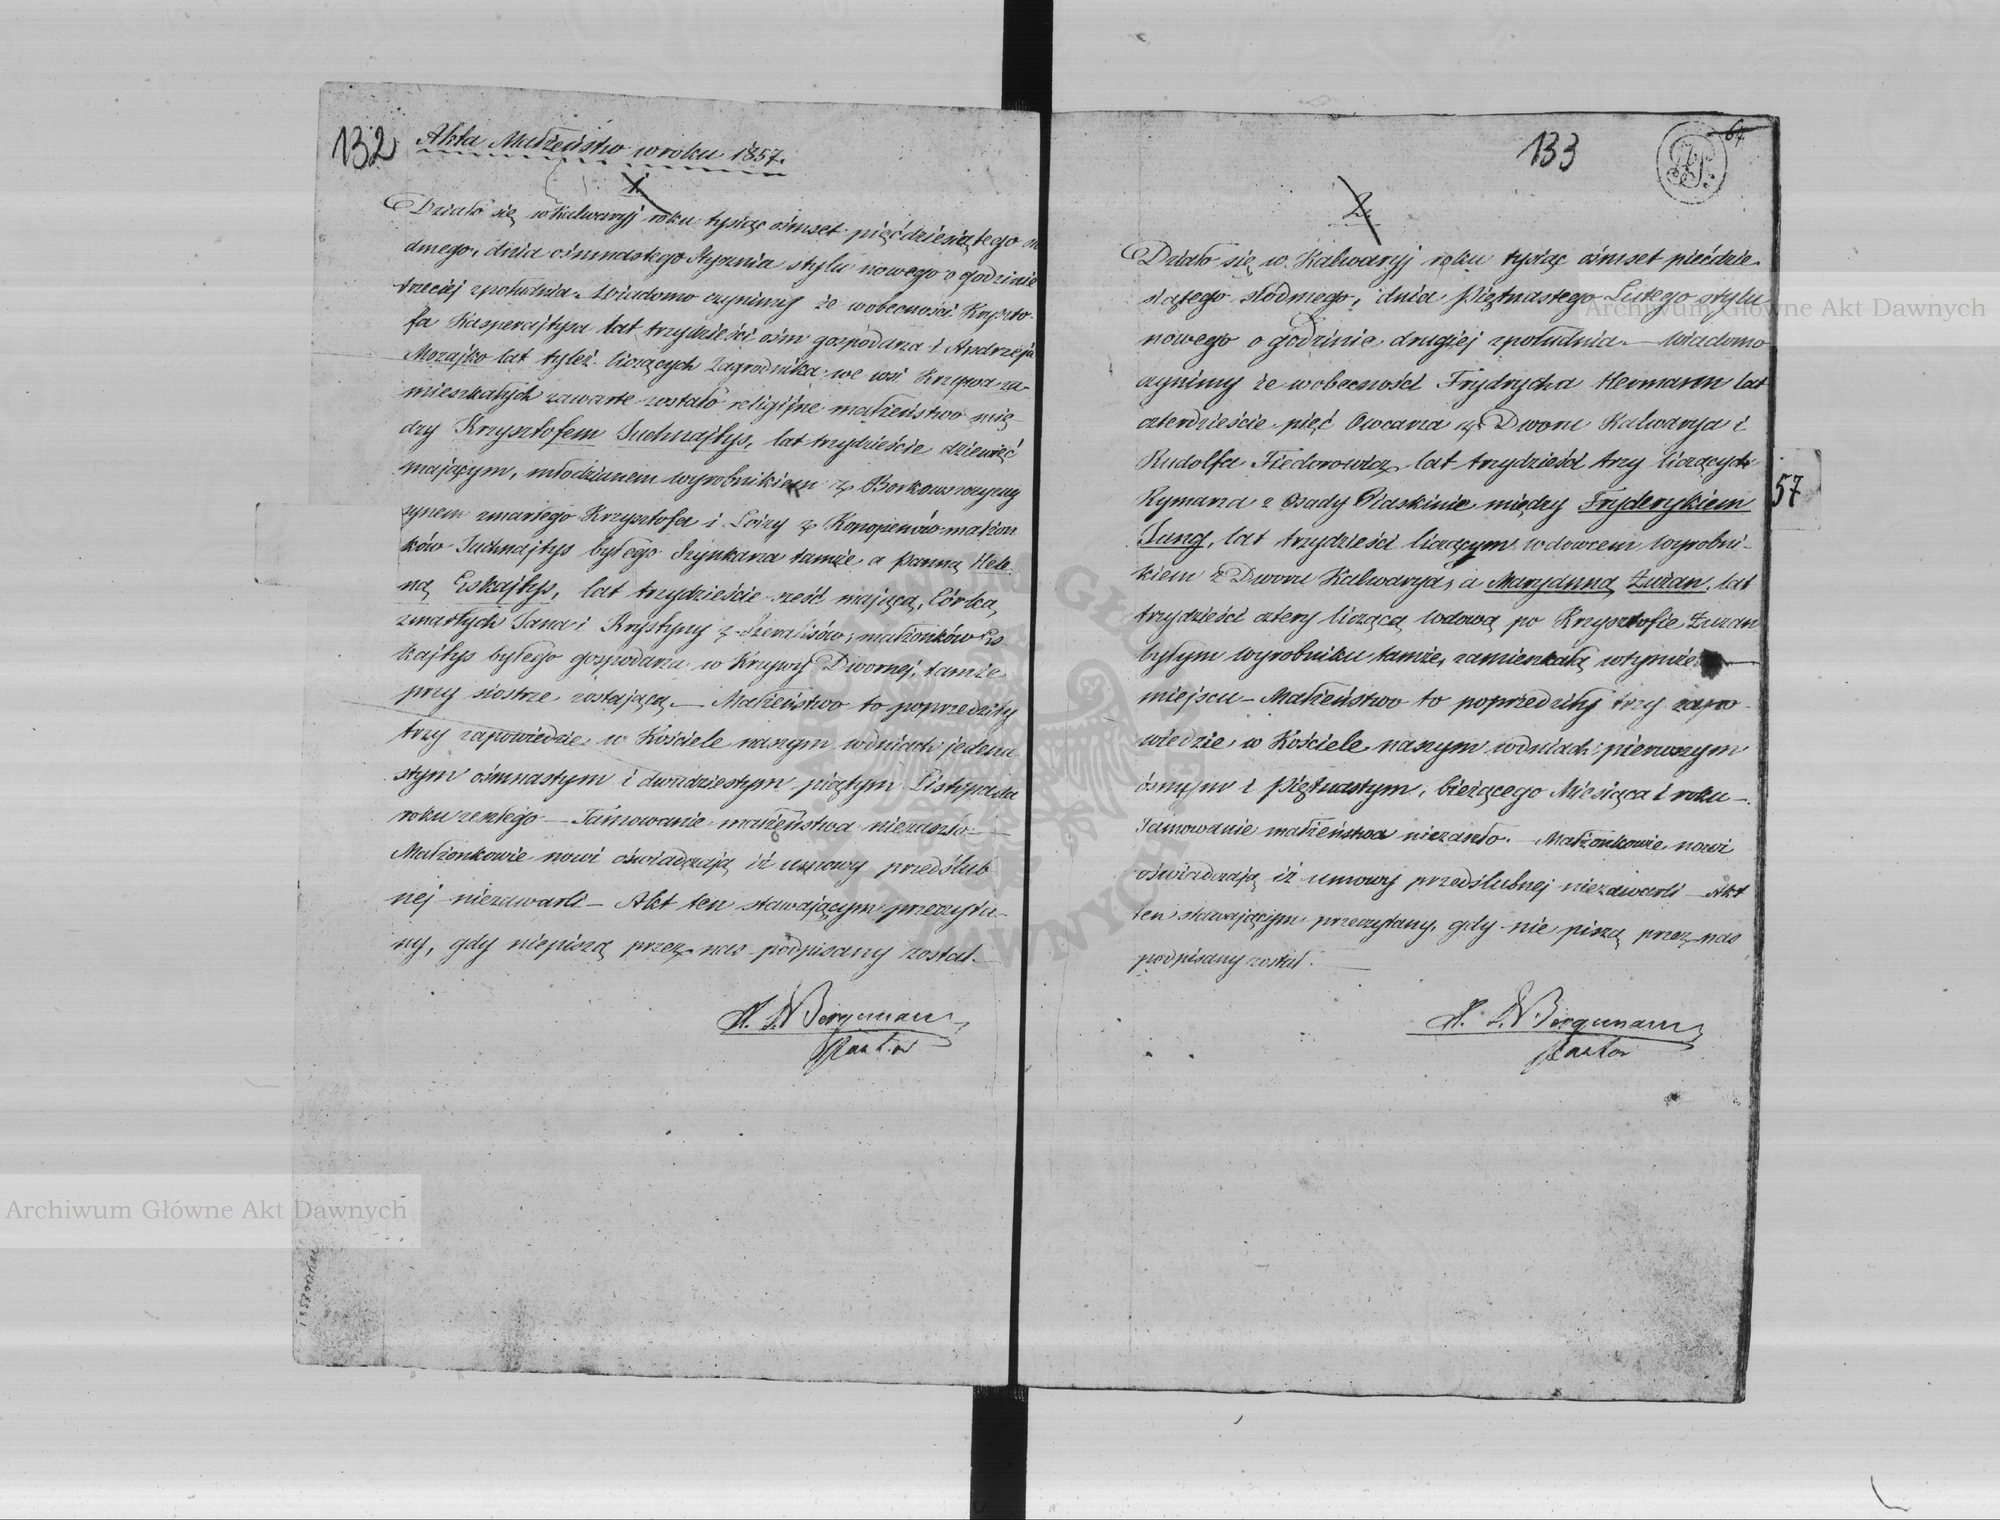 132
Akta Małżeństw w roku 1857.
1.
Działo się w Kalwaryj roku tysiąc ośmset pięćdziesiątego sió
dmego, dnia ośmnastego Stycznia stylu nowego o godzinie
trzeciej z południa. Wiadomo czynimy że w obecności Kryszto-
fa Kasperajtysa lat trzydzieści ośm gospodarza i Andrzeja
Mozajko lat tyleż liczących Zagrodnika we wsi Krzywa za-
mieszkałych zawarte zostało religijne małżeństwo mię-
dzy Krzysztofem Juchnajtys, lat trzydzieście dziewięć
mającym, młodzianem wyrobnikiem z Borkowszczyzny
synem zmarłego Krzysztofa i Loizy z Konopienów małżon
ków Juchnajtys byłego Szynkarza tamże a panną Hele
ną Eskajtys, lat trzydzieście sześć mającą, Córką
zmarłych Jana i Krystyny z Szeralisów, małżonków Es
kajtys byłego gospodarza w Krzywy Dwornej, tamże
przy siostrze zostającą. — Małżeństwo to poprzedziły
trzy zapowiedzie w Kościele naszym w dniach jedena
stym ośmnastym i dwudziestym piątym Listopada
roku zeszłego — Tamowanie małżeństwa niezaszło —
Małżonkowie nowi oświadczają iż umowy przedślub
nej niezawarli — Akt ten stawającym przeczyta-
ny, gdy niepiszą przez nas podpisany został. —
H. L. W. Bergmann
Pastor
133
64
2.
Działo się w Kalwaryj roku tysiąc ośmset pięćdzie-
siątego siódmego, dnia Piętnastego Lutego stylu
nowego o godzinie drugiej z południa — Wiadomo
czynimy że w obecności Frydrycha Hermann lat
czterdzieście pięć Owcarza z Dworu Kalwarya i
Rudolfa Fiedorowicz lat trzydzieści trzy liczących
Rymarza z osady Piaskinie między Fryderykiem
Jung, lat trzydzieści liczącym wdowcem wyrobni-
kiem z Dworu Kalwarya, a Maryanną Zuzan, lat
trzydzieści cztery liczącą wdową po Krzysztofie Zuzan
byłym wyrobniku tamże, zamieszkałą w tymże —
miejscu — Małżeństwo to poprzedziły trzy zapo-
wiedzie w Kościele naszym w dniach pierwszym
ósmym i Piętnastym, bieżącego Miesiąca i roku —
Tamowanie małżeństwa niezaszło. — Małżonkowie nowi
oświadczają iż umowy przedślubnej niezawarli — Akt
ten stawającym przeczytany, gdy nie piszą przez nas
podpisany został. —
H. L. W. Bergmann
Pastor
57
Archiwum Główne Akt Dawnych
Archiwum Główne Akt Dawnych